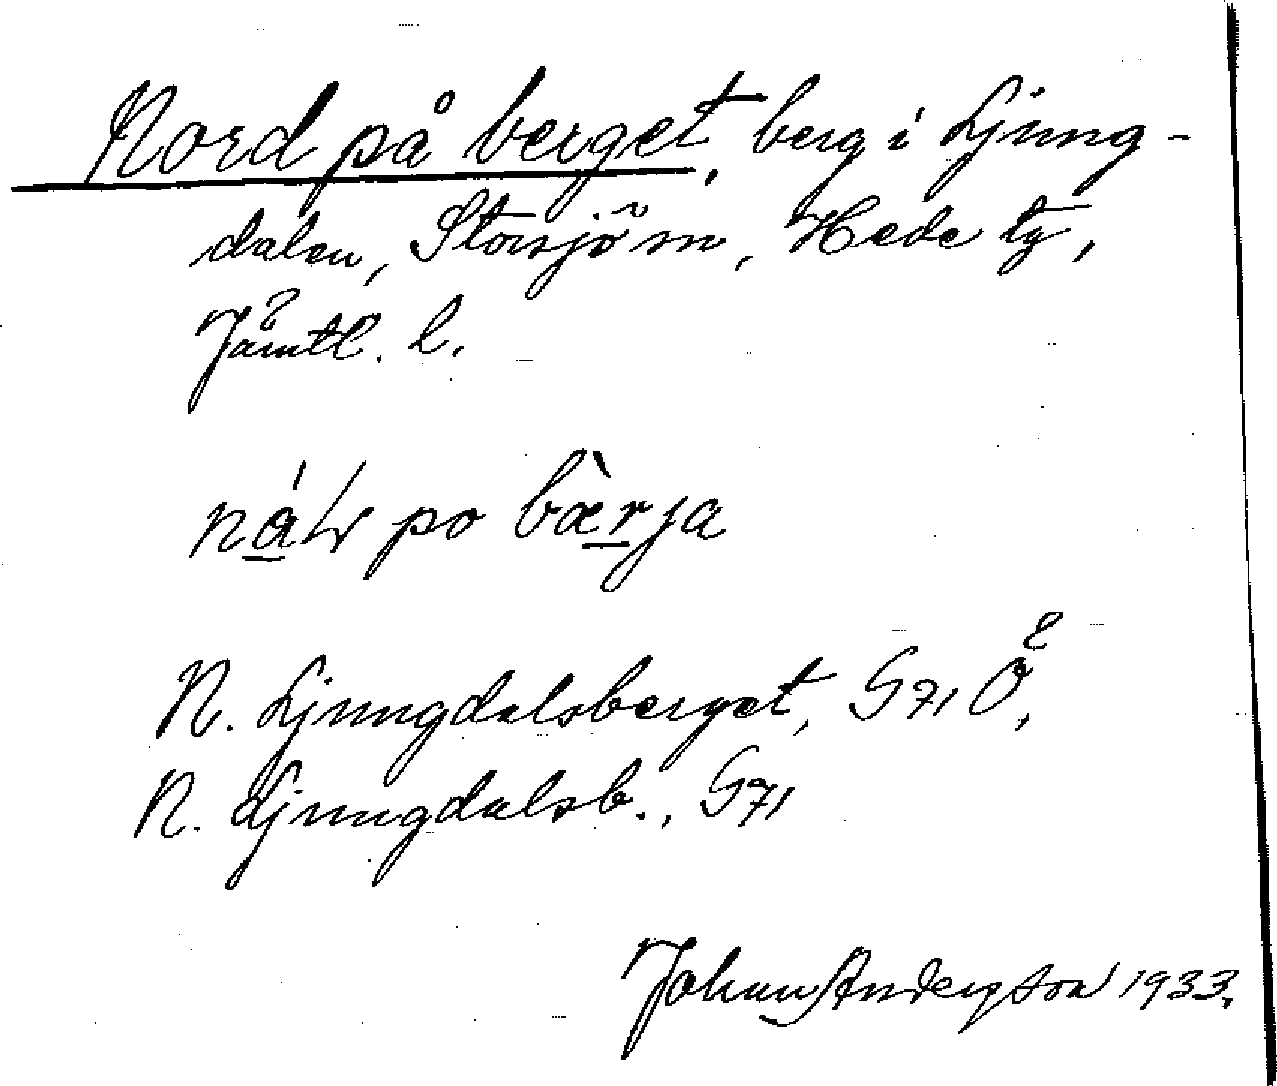 Nord på berget, berg i Ljung-
dalen, Storsjö sn, Hede tg,
Jämtl. l.
po bæ̀rja
N. Ljungdalsberget, G 71 Ö,
N. Ljungdalsb., G 71
Johan Anderson 1933.